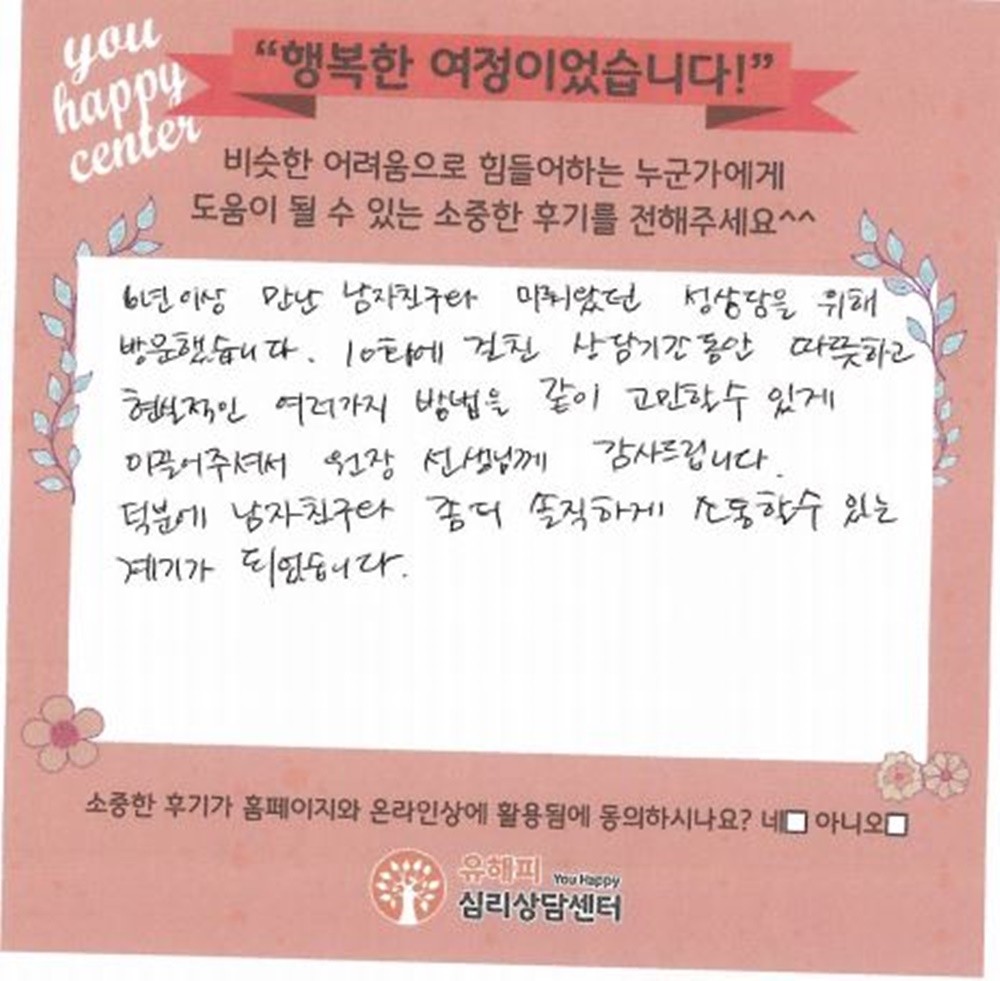 you
happy
center
“행복한 여정이었습니다!”
비슷한 어려움으로 힘들어하는 누군가에게
도움이 될 수 있는 소중한 후기를 전해주세요^^
6년이상 만난 남자친구와 미뤄왔던 성상담을 위해
방문했습니다. 10회에 걸친 상담기간동안 따뜻하고
현실적인 여러가지 방법을 같이 고민할수 있게
이끌어주셔서 원장 선생님께 감사드립니다.
덕분에 남자친구와 좀더 솔직하게 소통할수 있는
계기가 되었습니다.
소중한 후기가 홈페이지와 온라인상에 활용됨에 동의하시나요? 네□ 아니오□
유해피 You Happy
심리상담센터